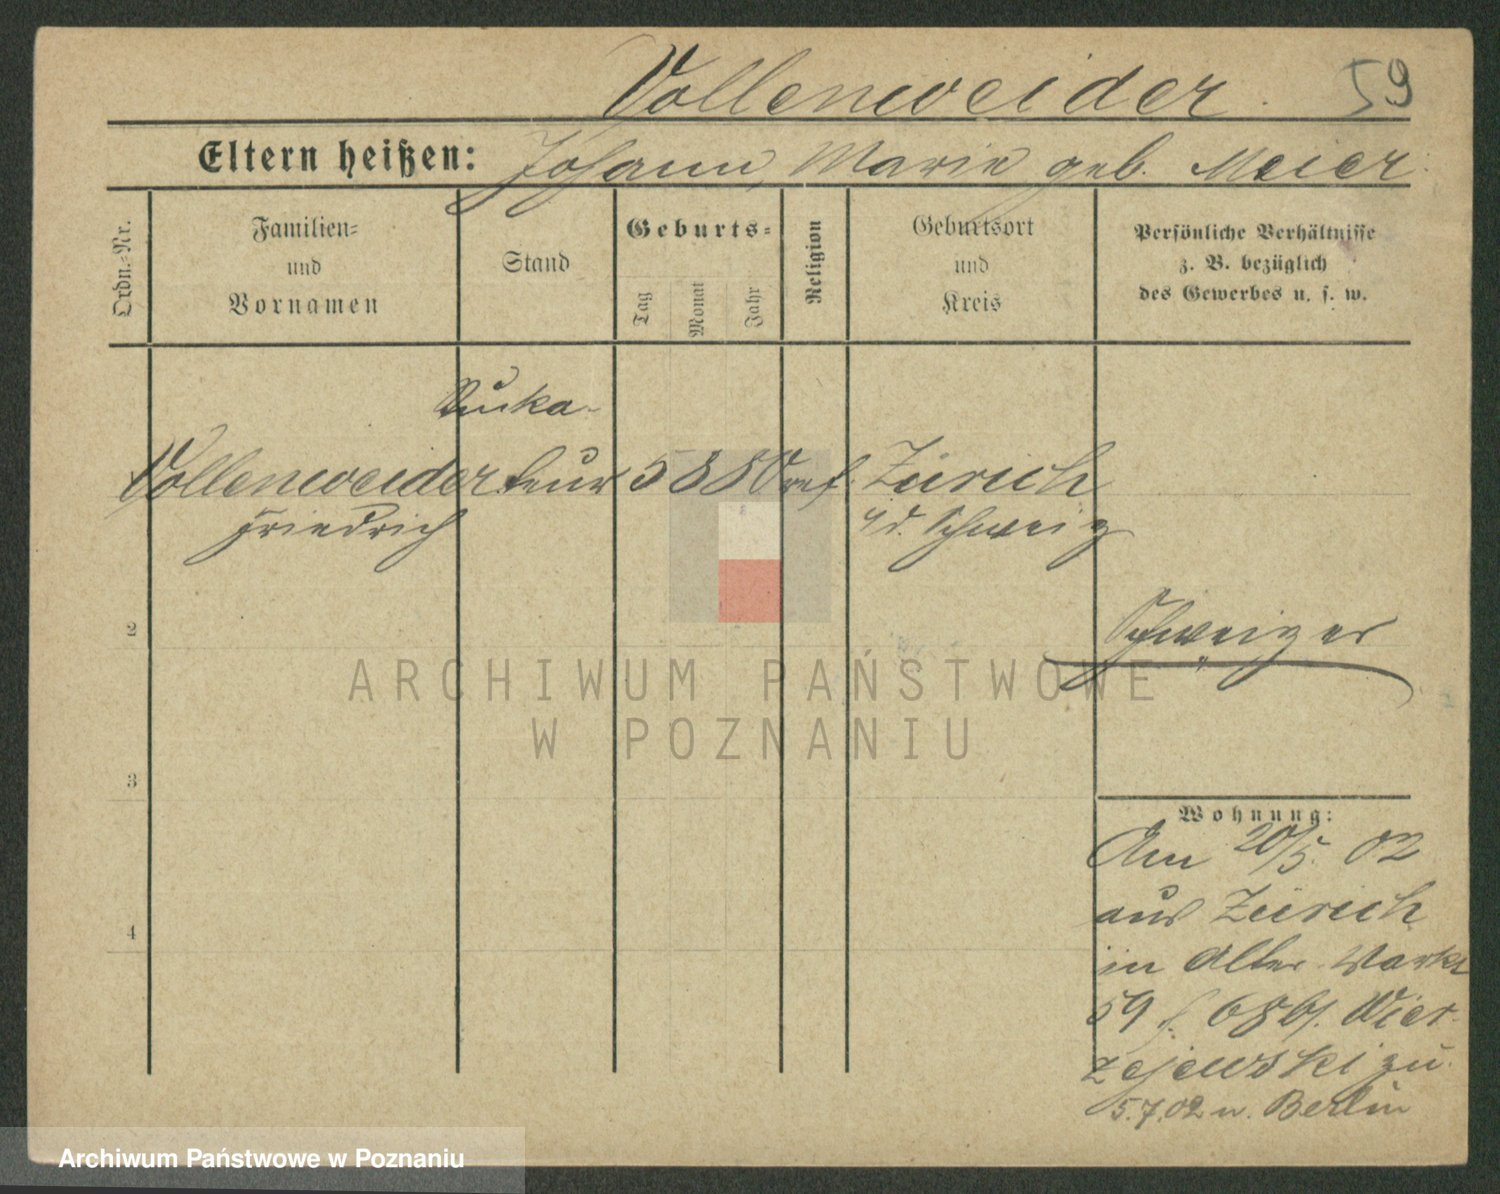 Vollenweider. 59
Eltern heißen: Johann, Marie geb. Meier.
Ordn.-Nr.
Familien-
und
Vornamen
Stand
Geburts-
Tag
Monat
Jahr
Religion
Geburtsort
und
Kreis
Persönliche Verhältnisse
z. B. bezüglich
des Gewerbes u. s. w.
Vollenweider
Friedrich
5 8 80 ref. Zürich
i/d. Schweiz
2
Schweizer
3
4
Wohnung:
Am 20/5. 02
aus Zürich
in Alter Markt
59 Wier-
zejewski zu.
5.7.02 n. Berlin
ARCHIWUM PAŃSTWOWE
W POZNANIU
Archiwum Państwowe w Poznaniu